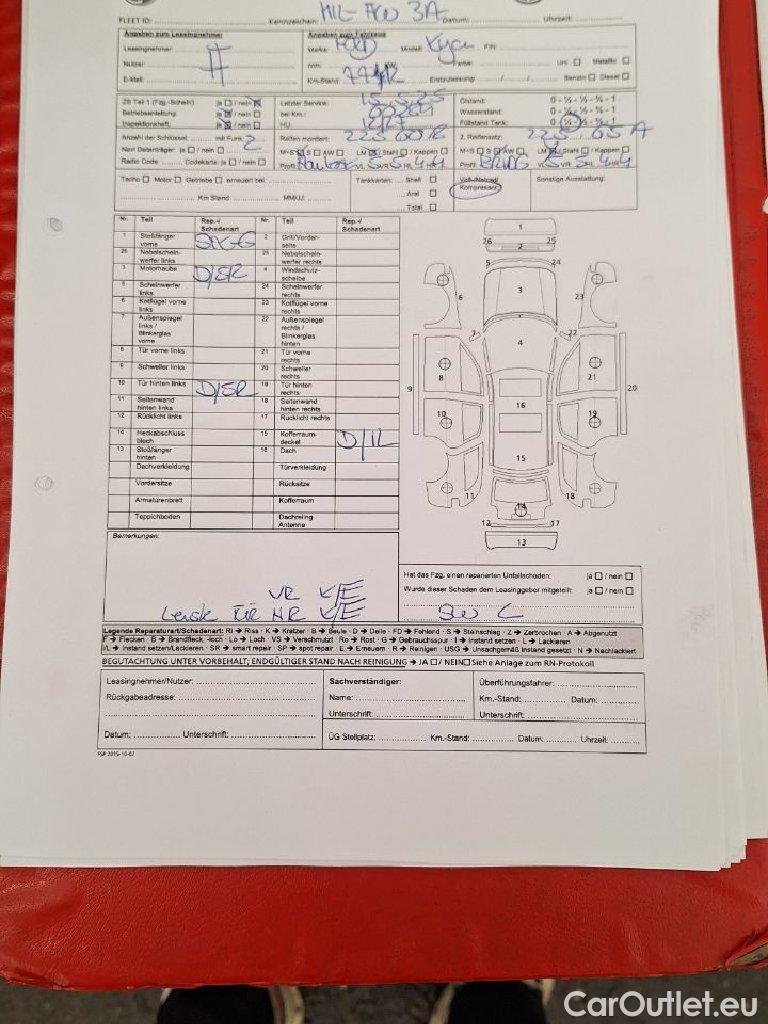 FLEET ID: Kennzeichen: MIL-FW 3A Datum: Uhrzeit:
Angaben zum Leasingnehmer
Angaben zum Fahrzeug
Leasingnehmer:
Marke: FORD Modell: Kuga FIN:
Nutzer:
Farbe: Uni ☐ Metallic ☐
E-Mail:
Km-Stand: Erstzulassung: / / Benzin ☐ Diesel ☐
ZB Teil 1 (Fzg.-Schein) ja ☐ / nein ☒
Letzter Service: 15.5.25
Ölstand: 0 - ¼ - ½ - ¾ - 1
Betriebsanleitung: ja ☒ / nein ☐
bei Km.:
Wasserstand: 0 - ¼ - ½ - ¾ - 1
Inspektionsheft: ja ☒ / nein ☐
HU:
Füllstand Tank: 0 - ¼ - ½ - ¾ - 1
Anzahl der Schlüssel: mit Funk: 2
Reifen montiert: 225 60 18
2. Reifensatz: 225 65
Navi Datenträger: ja ☐ / nein ☐
M+S ☐ S ☐ AW ☐ LM ☐ Stahl ☐ / Kappen ☐
M+S ☐ S ☐ AW ☐ LM ☐ Stahl ☐ / Kappen ☐
Radio Code: Codekarte: ja ☐ / nein ☐
Profil: VL 5 VR 5 HL 4 HR 4
Profil: VL 5 VR 5 HL 4 HR 4
Tacho ☐ Motor ☐ Getriebe ☐ erneuert bei:
Km Stand MM/JJ:
Tankkarten: Shell ☐
Aral ☐
Total ☐
Voll-/Notrad/
Kompressor
Sonstige Ausstattung:
Nr. Teil Rep.-/ Schadenart Nr. Teil Rep.-/ Schadenart
1 Stoßfänger vorne 2 Grill/Vorderseite
26 Nebelscheinwerfer links 25 Nebelscheinwerfer rechts
3 Motorhaube D/SR 4 Windschutzscheibe
5 Scheinwerfer links 24 Scheinwerfer rechts
6 Kotflügel vorne links 23 Kotflügel vorne rechts
7 Außenspiegel links / Blinkerglas vorne 22 Außenspiegel rechts / Blinkerglas hinten
8 Tür vorne links 21 Tür vorne rechts
9 Schweller links 20 Schweller rechts
10 Tür hinten links D/SR 19 Tür hinten rechts
11 Seitenwand hinten links 18 Seitenwand hinten rechts
12 Rücklicht links 17 Rücklicht rechts
14 Heckabschluss blech 15 Kofferraumdeckel D/IL
13 Stoßfänger hinten 16 Dach
Dachverkleidung Türverkleidung
Vordersitze Rücksitze
Armaturenbrett Kofferraum
Teppichboden Dachreling Antenne
1
26 25
2
5 24
3
6 23
7 22
4
8 21
9 20
16
10 19
15
11 18
14
12 17
13
Bemerkungen:
VR K/E
Leiste Tür HR K/E
Hat das Fzg. einen reparierten Unfallschaden: ja ☐ / nein ☐
Wurde dieser Schaden dem Leasinggeber mitgeteilt: ja ☐ / nein ☐
Legende Reparaturart/Schadenart: RI → Riss · K → Kratzer · B → Beule · D → Delle · FD → Fehlend · S → Steinschlag · Z → Zerbrochen · A → Abgenutzt
F → Flecken · B → Brandfleck, -loch · Lo → Loch · VS → Verschmutzt · Ro → Rost · G → Gebrauchsspur · I → Instand setzen · L → Lackieren
I/L → Instand setzen/Lackieren · SR → smart repair · SP → spot repair · E → Erneuern · R → Reinigen · USG → Unsachgemäß instand gesetzt · N → Nachlackiert
BEGUTACHTUNG UNTER VORBEHALT; ENDGÜLTIGER STAND NACH REINIGUNG → JA ☐ / NEIN ☐ Siehe Anlage zum RN-Protokoll
Leasingnehmer/Nutzer: Sachverständiger: Überführungsfahrer:
Rückgabeadresse: Name: Km.-Stand: Datum:
Unterschrift: Unterschrift:
Datum: Unterschrift: ÜG Stellplatz: Km.-Stand: Datum: Uhrzeit:
CarOutlet.eu